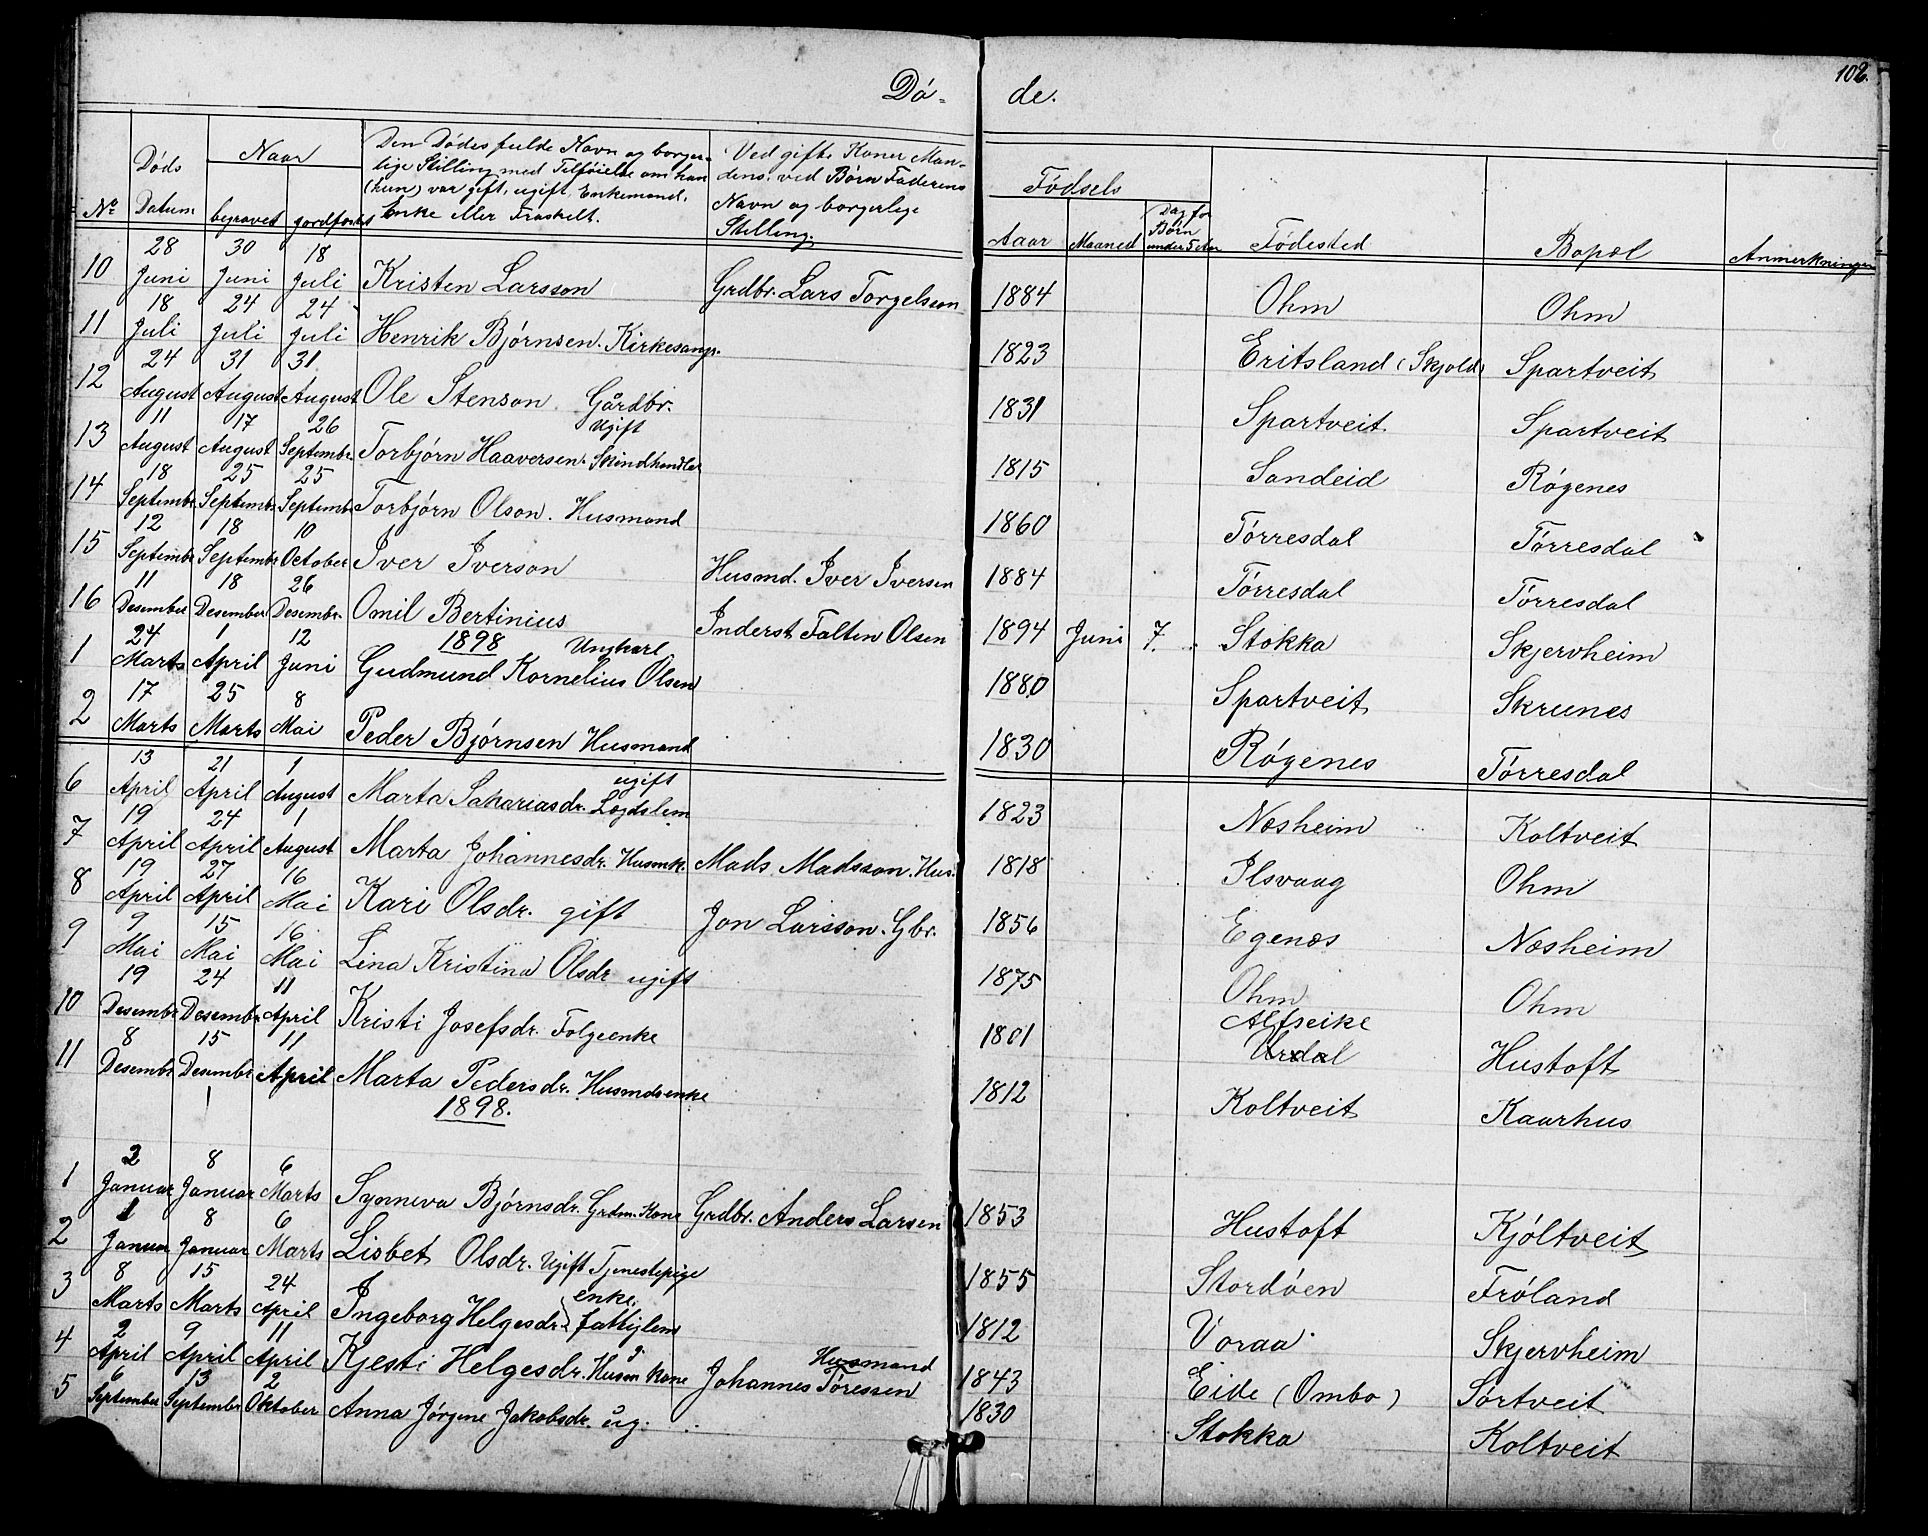 Dö- de. 102.
Nr. Döds Datum Naar begravet jordfæstet Den Dödes fulde Navn og borger- Ved gifte Koner Man- Fødsels Aar Maaned Dag for Børn under 5 Aar Födested Bopæl Anmerkninger
lige Stilling med Tilföielse om han dens, ved Børn Faderens
(hun) var gift, ugift, Enkemand, Navn og borgerlige
Enke eller Fraskilt. Stilling.
10 28 Juni 30 Juni 18 Juli Kristen Larsson Grdbr. Lars Torgelsson 1884 Ohm Ohm
11 18 Juli 24 Juli 24 Juli Henrik Bjørnsen. Kirkesangr. 1823 Eritsland (Skjold) Spartveit
12 24 August 31 August 31 August Ole Stenson Gårdbr. 1831 Spartveit. Spartveit
13 11 August 17 August 26 Septembr. Torbjørn Haaversen. Ugift Skindhandler 1815 Sandeid Rögenes
14 18 Septembr 25 Septembr 25 Septembr Torbjørn Olson. Husmand 1860 Törresdal Törresdal
15 12 Septembr 18 Septembr 10 October Iver Iverson Husmd. Iver Iversen 1884 Törresdal Törresdal
16 11 Desember 18 Desember 26 Desembr. Omil Bertinius Inderst Falten Olsen 1894 Juni 7. Stokka Skjervheim
1898
1 24 Marts 1 April 12 Juni Gudmund Kornelius Olsen Ungkarl 1880 Spartveit Skrunes
2 17 Marts 25 Marts 8 Mai Peder Bjørnsen Husmand 1830 Rögenes Törresdal
6 13 April 21 April 1 August Marta Sakariasdr. ugift Lægdslem 1823 Næsheim Koltveit
7 19 April 24 April 1 August Marta Johannesdr. Husmk. Mads Madsson. Hus. 1818 Ilsvaag Ohm
8 19 April 27 April 16 Mai Kari Olsdr. gift Jon Larsson. Gbr. 1856 Egenæs Næsheim
9 9 Mai 15 Mai 16 Mai Lina Kristina Olsdr ugift 1875 Ohm Ohm
10 19 Desembr 24 Desembr 11 April Kristi Josefsdr. Folgeenke 1801 Alfseike Urdal Hustoft
11 8 Desembr 15 Desembr 11 April Marta Pedersdr. Husmdsenke 1812 Koltveit Kaarhus
1898.
1 2 Januar 8 Januar 6 Marts Synneva Bjørnsdr. Grdm. Kone Grdbr. Anders Larsen 1853 Hustoft Kjöltveit
2 1 Januar 8 Januar 6 Marts Lisbet Olsdr. Ugift Tjenestepige 1855 Stordöen Fröland
3 8 Marts 15 Marts 24 April Ingeborg Helgesdr. enke. fattiglem 1812 Voraa Skjervheim
4 2 April 9 April 11 April Kjesti Helgesdr. Husm kone Johannes Töressen Husmand 1843 Eide (Ombo) Sörtveit
5 6 September 13 September 2 Oktober Anna Jørgine Jakobsdr. ug. 1830 Stokka Koltveit